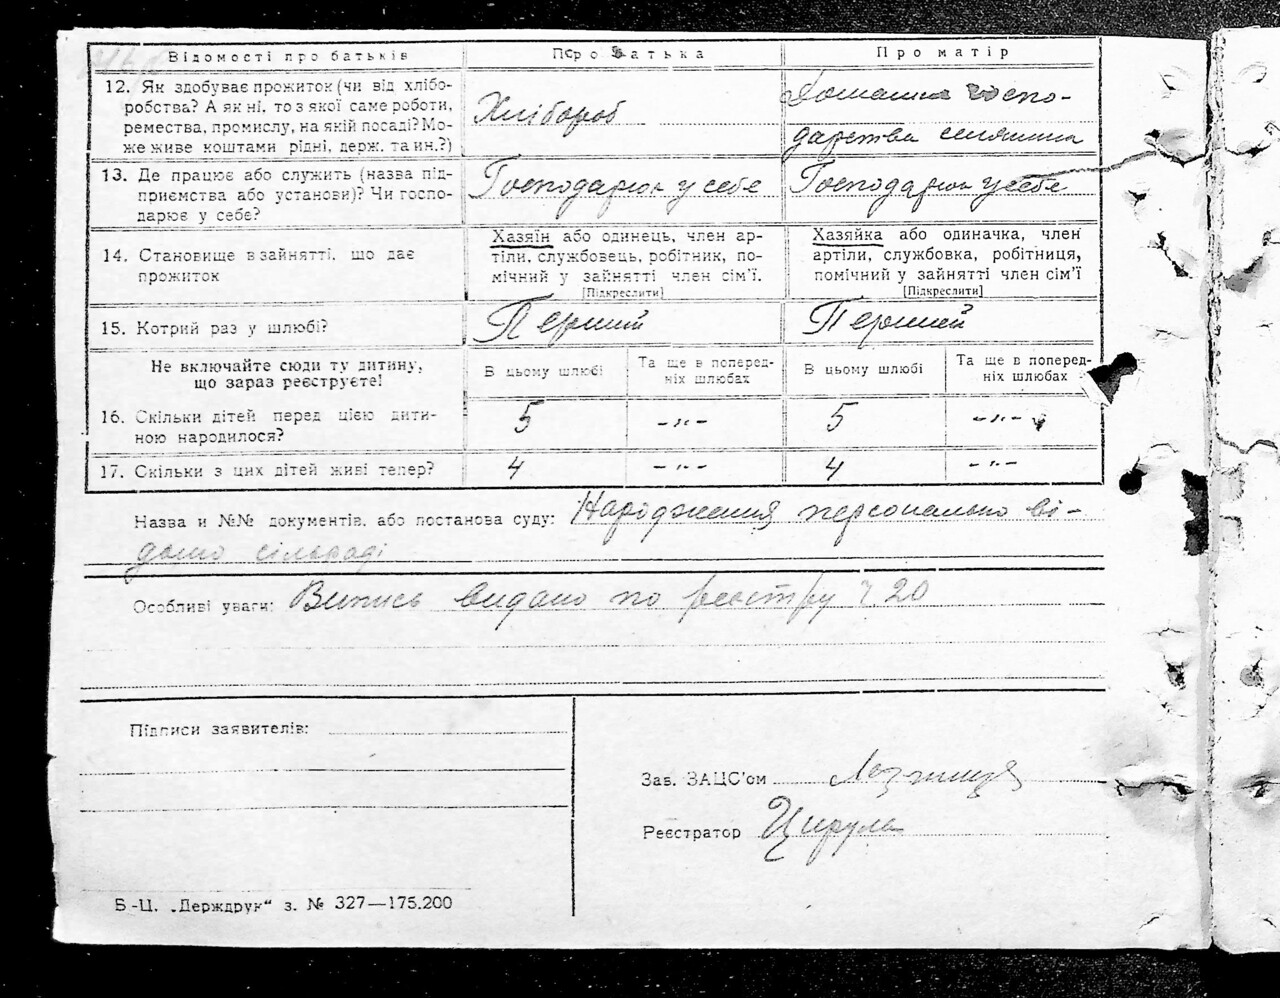 Відомості про батьків Про батька Про матір
12. Як здобуває прожиток (чи від хлібо-
робства? А як ні, то з якої саме роботи,
ремества, промислу, на якій посаді? Мо-
же живе коштами рідні, держ. та ин.?)
Хлібороб
Домашнє госпо-
дарства селянина
13. Де працює або служить (назва під-
приємства або установи)? Чи госпо-
дарює у себе?
Господарює у себе
Господарює у себе
14. Становище в зайнятті, що дає
прожиток
Хазяїн або одинець, член ар-
тіли, службовець, робітник, по-
мічний у зайнятті член сім'ї.
[Підкреслити]
Хазяйка або одиначка, член
артіли, службовка, робітниця,
помічний у зайнятті член сім'ї
[Підкреслити]
15. Котрий раз у шлюбі?
Перший
Перший
Не включайте сюди ту дитину,
що зараз реєструєте!
В цьому шлюбі
Та ще в поперед-
ніх шлюбах
В цьому шлюбі
Та ще в поперед-
ніх шлюбах
16. Скільки дітей перед цією дити-
ною народилося?
5 -"- 5 -"-
17. Скільки з цих дітей живі тепер?
4 -"- 4 -"-
Назва и №№ документів, або постанова суду: Народження персонально ві-
домо сільраді
Особливі уваги: Випись видано по реєстру ч 20
Підписи заявителів:
Зав. ЗАЦС'ом
Реєстратор Цируля
Б-Ц. „Держдрук" з. № 327—175.200